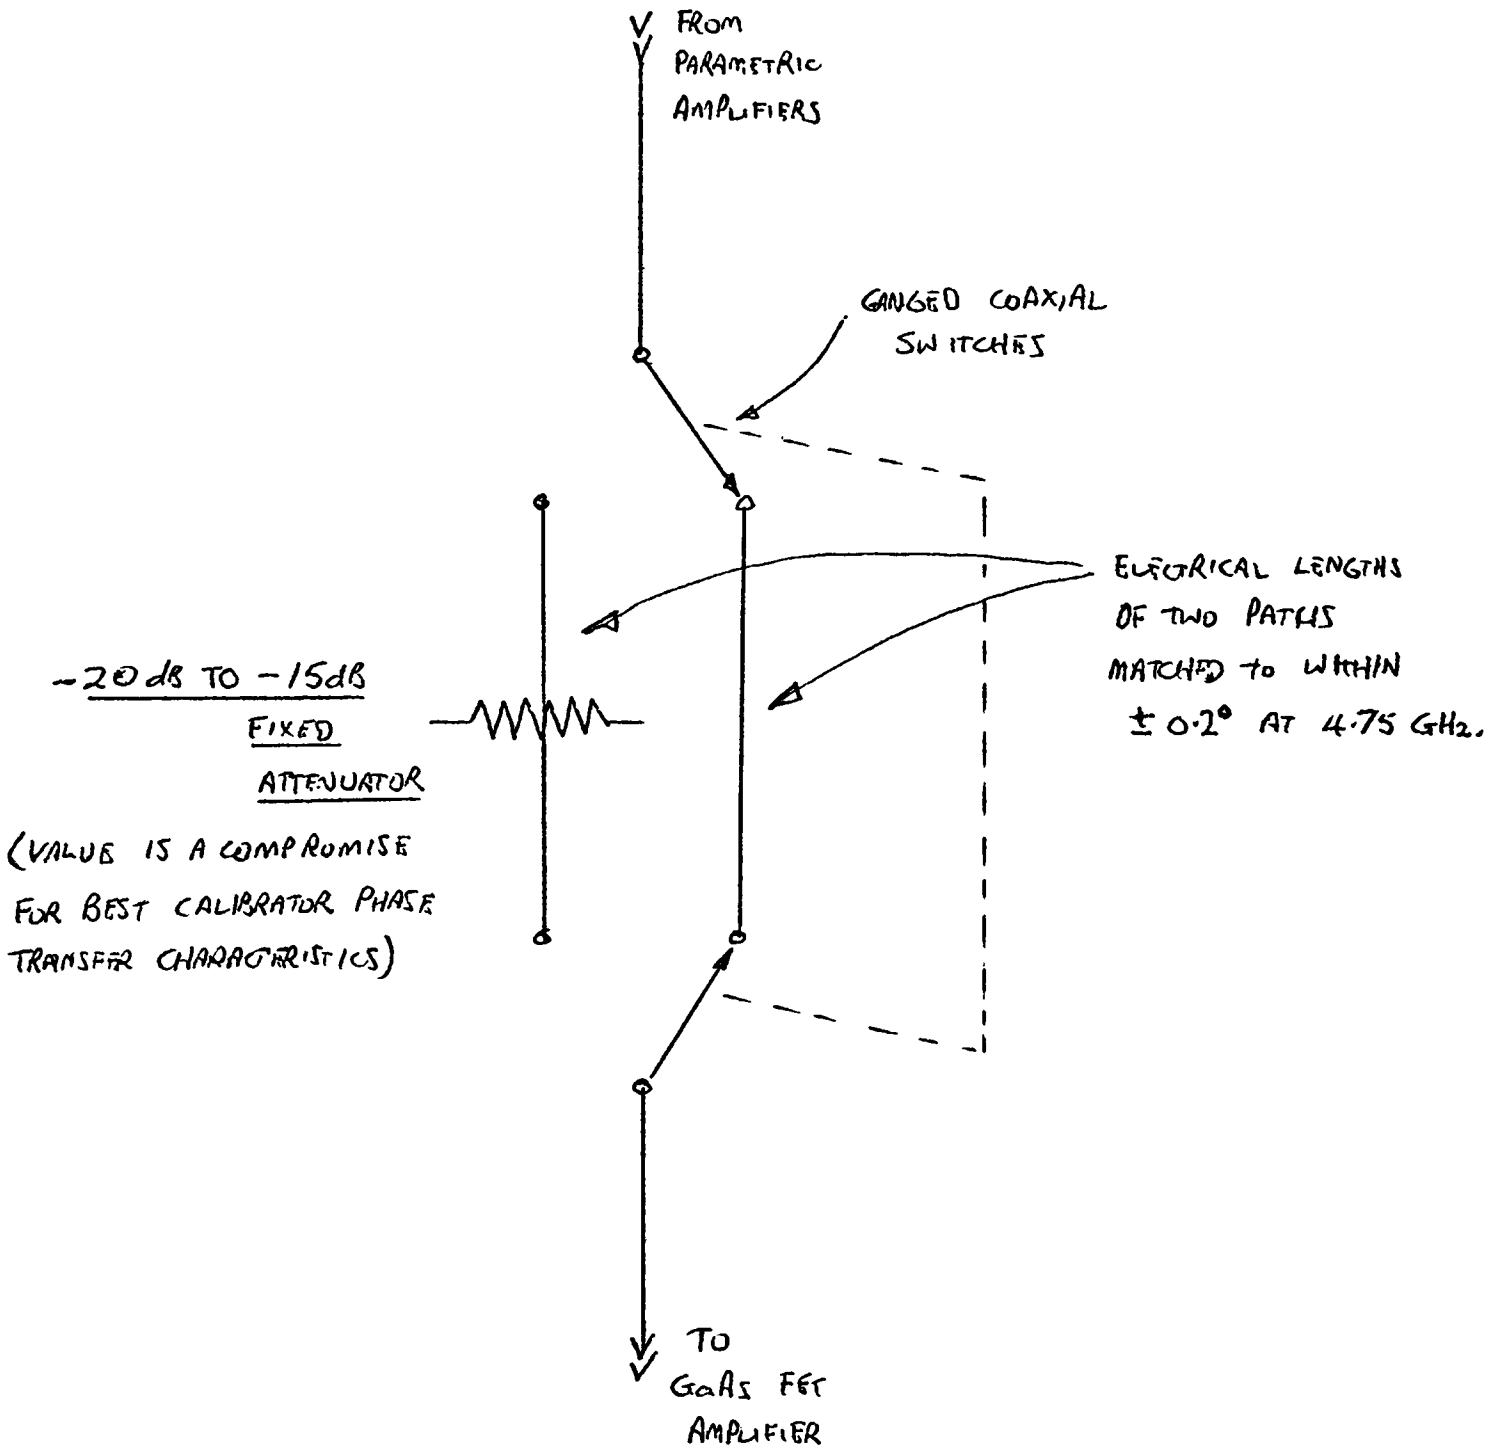 FROM
PARAMETRIC
AMPLIFIERS
GANGED COAXIAL
SWITCHES
ELECTRICAL LENGTHS
OF TWO PATHS
MATCHED TO WITHIN
± 0.2° AT 4.75 GHz.
-20 dB TO -15dB
FIXED
ATTENUATOR
(VALUE IS A COMPROMISE
FOR BEST CALIBRATOR PHASE
TRANSFER CHARACTERISTICS)
TO
GaAs FET
AMPLIFIER